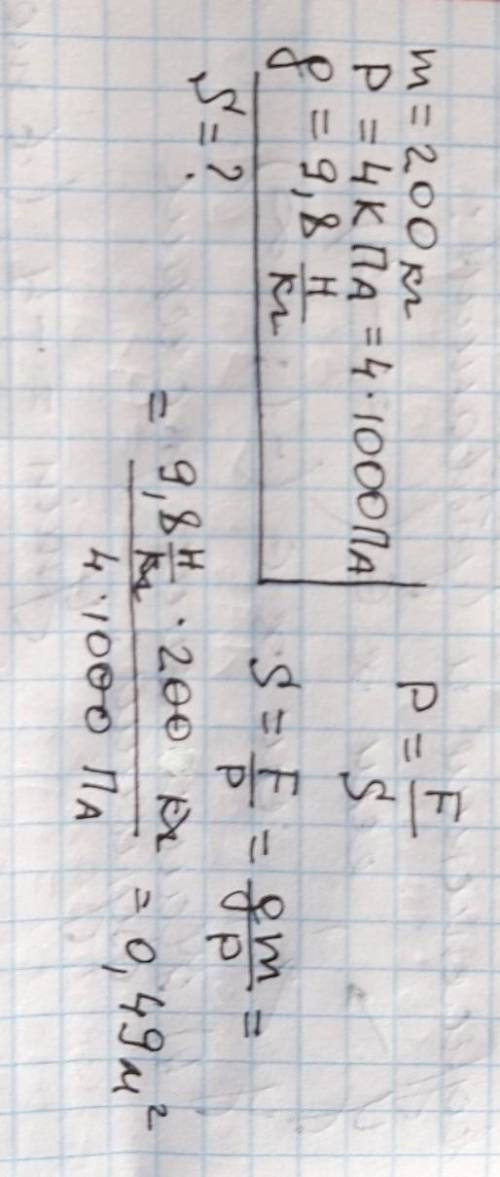 m = 200 кг
p = 4 кПа = 4·1000 Па
g = 9,8 Н/кг
S = ?
p = F/S
S = F/p = gm/p =
= 9,8 Н/кг · 200 кг / 4·1000 Па = 0,49 м²